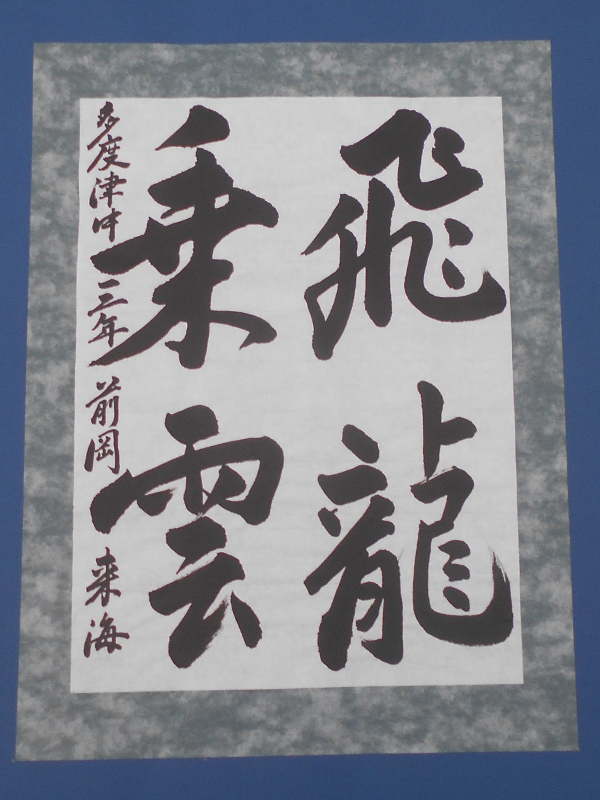 飛龍
乗雲
多度津中三年 前岡 来海